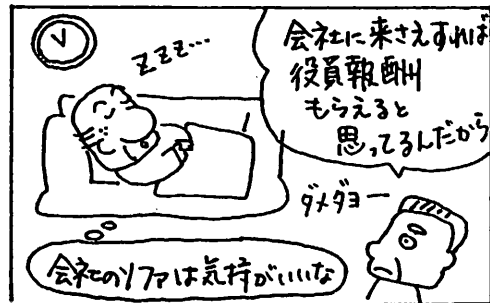 会社に来さえすれば
役員報酬
もらえると
思ってるんだから
ZZZ…
ダメダヨー
会社のソファは気持がいいな